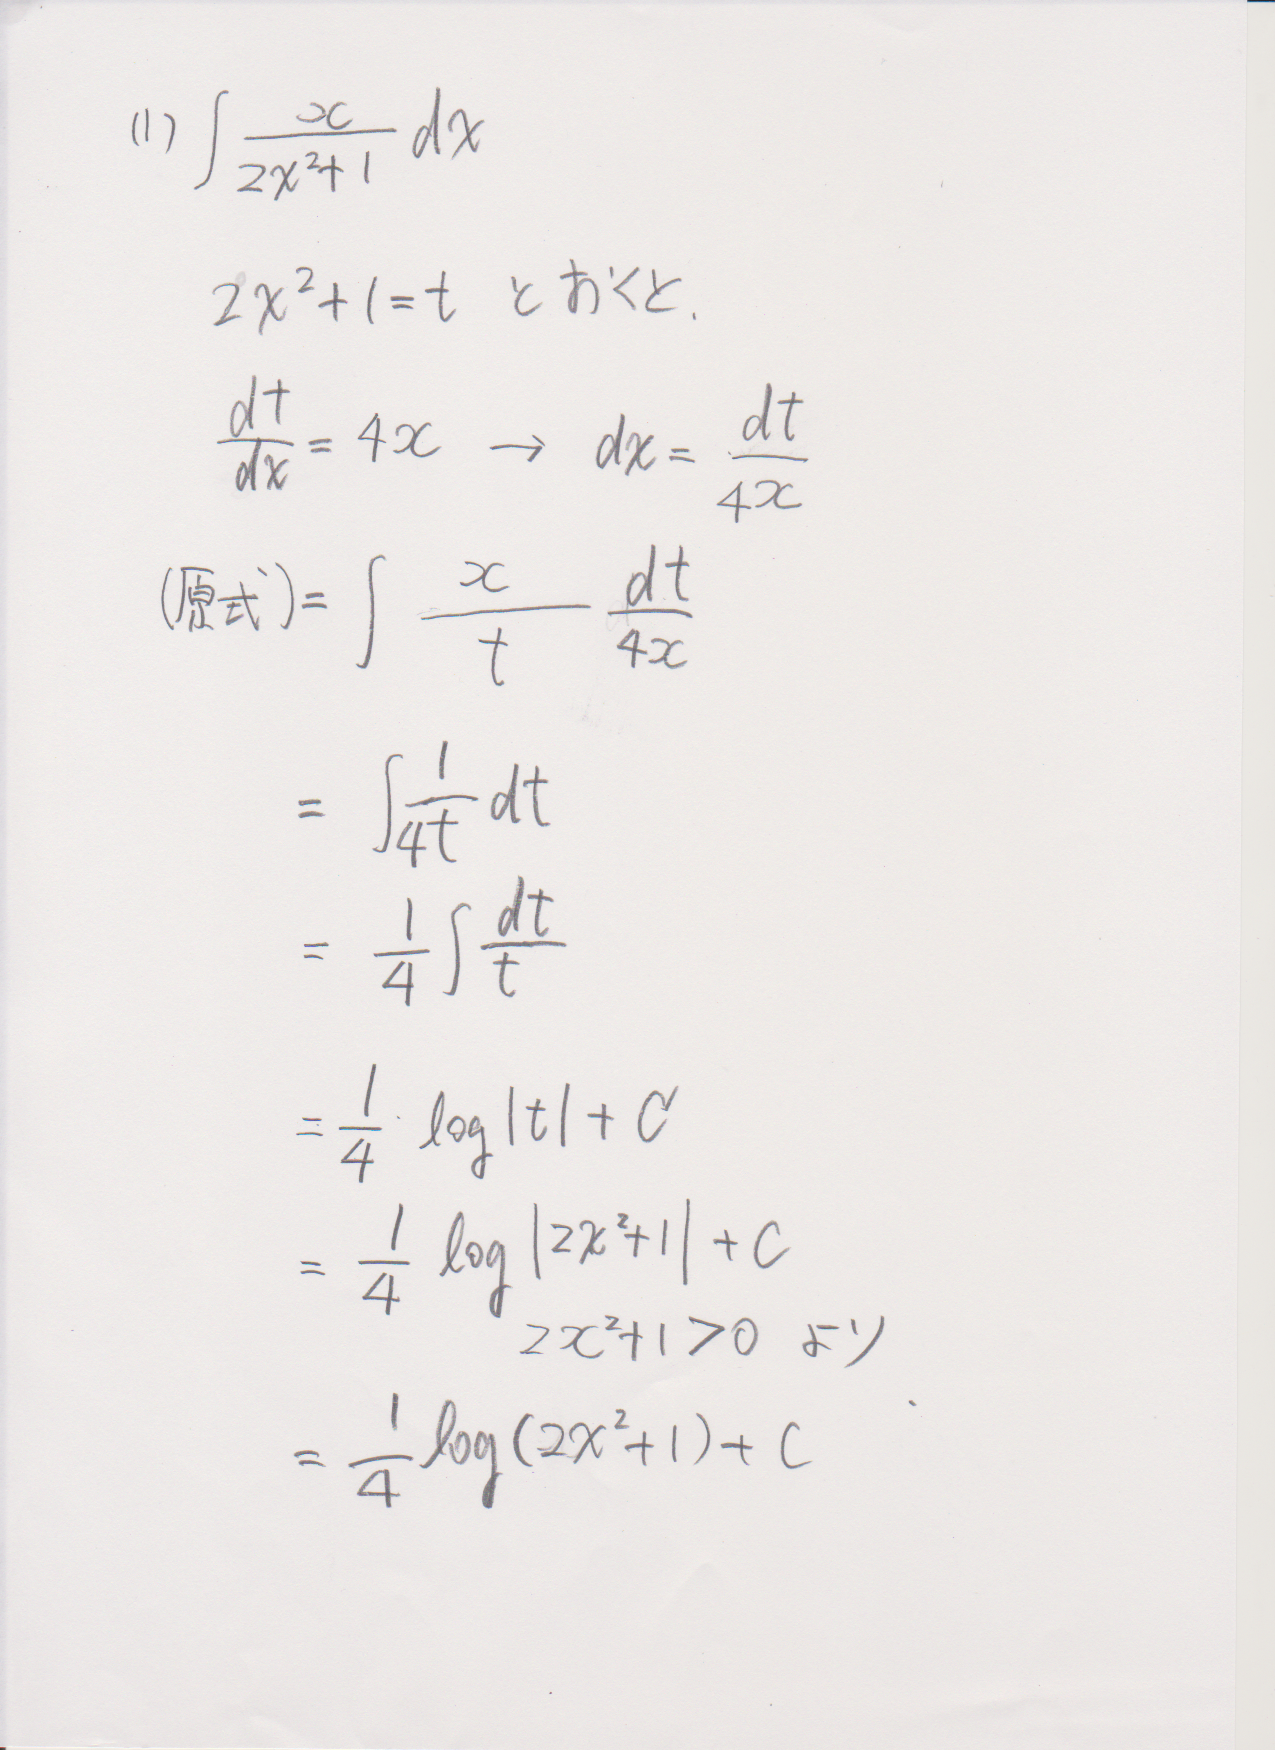 (1) ∫ x/(2x²+1) dx
2x²+1=t とおくと.
dt/dx = 4x → dx = dt/4x
(原式) = ∫ x/t dt/4x
= ∫ 1/4t dt
= 1/4 ∫ dt/t
= 1/4 log|t| + C
= 1/4 log|2x²+1| + C
2x²+1>0 より
= 1/4 log(2x²+1) + C